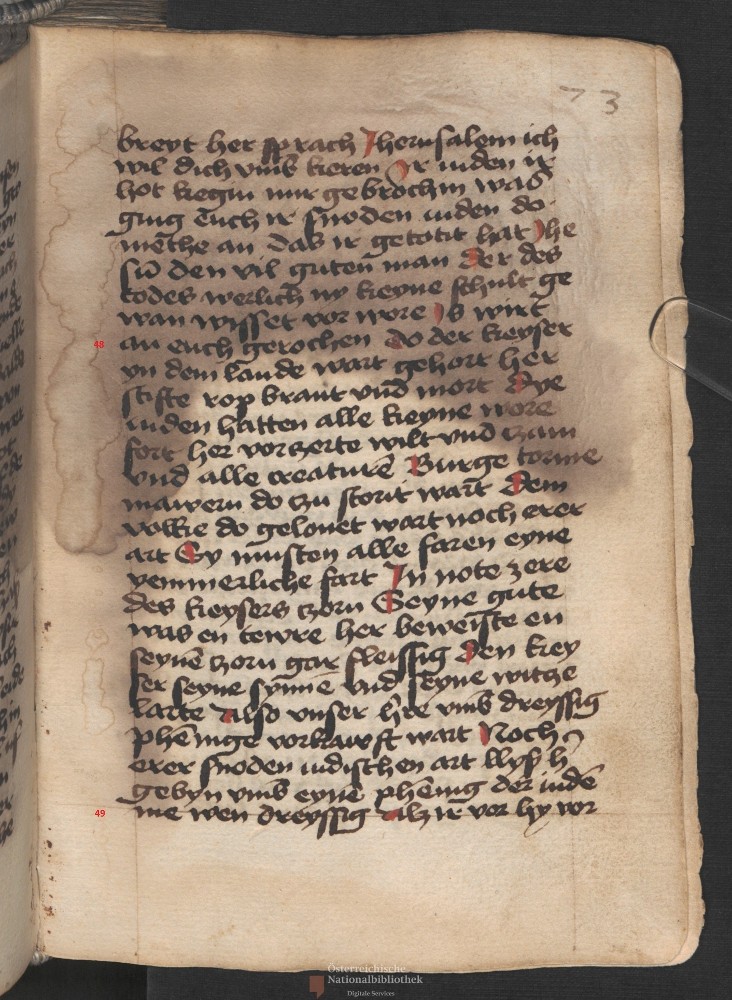 73
breyt her sprach Jherusalem ich
wil dich vmb kieren Or iuden ir
hot kegin mir gebrochin was
ging euch ir snoden iuden do
methe an das ir getotit hat Jhe
su den vil guten man der des
todes werlich ny keyne schult ge
wan wisset vor wore is wirt
48 an euch gerochen do der keyser
yn dem lande wart gehort her
stifte rop brant vnd mort Dye
iuden hatten alle keyne wore
fort her vorzerte wilt vnd czam
vnd alle creature Burge torme
mawern do czu storit wart Dem
volke do gelonet wart noch erer
art Sy musten alle faren eyne
yemmerliche fart In note zere
des keysers czorn Seyne gute
was en tewre her beweiste en
seyne czorn gar fleissig Den key
ser seyne synne vnd seyne witze
larte Also vnser hre vmb dreyssig
phennige vorkawft wart Noch
erer snoden iudischen art llyß h
gebyn vmb eyne phennig der iude
49 me wen dreyssig Alz ir vor hy vor
Österreichische
Nationalbibliothek
Digitale Services